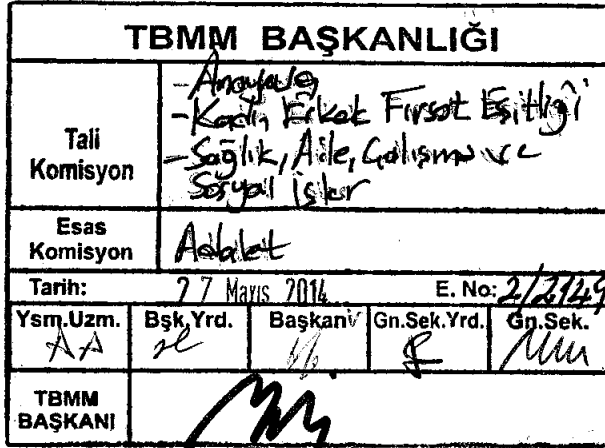 TBMM BAŞKANLIĞI
Tali Komisyon
- Anayasa
- Kadın Erkek Fırsat Eşitliği
- Sağlık, Aile, Çalışma ve
Sosyal İşler
Esas Komisyon
Adalet
Tarih: 27 Mayıs 2014 E. No: 2/2149
Ysm.Uzm. Bşk.Yrd. Başkan Gn.Sek.Yrd. Gn.Sek.
TBMM BAŞKANI